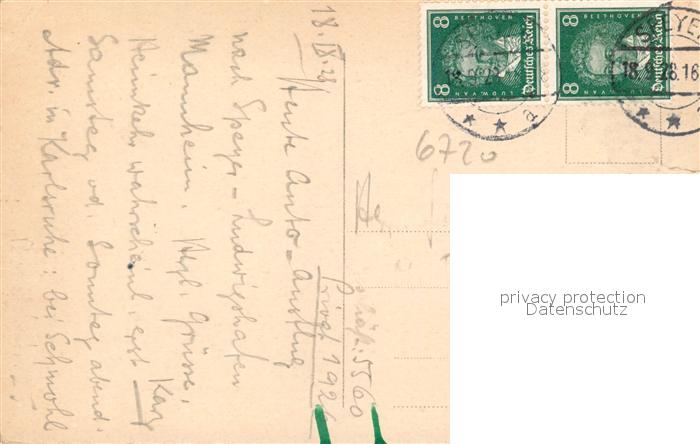 18. IX. 28
Heute Auto-Ausflug
nach Speyer - Ludwigshafen
Mannheim. Herzl. Grüsse.
Heimkehr wahrscheinl. erst
Samstag od. Sonntag abend.
Adr. in Karlsruhe: bei Schmohl
Privat 1926
5560
6720
BEETHOVEN
8
Deutsches Reich
8
LUDWIG VAN
BEETHOVEN
8
Deutsches Reich
8
LUDWIG VAN
SPEYER
18.9.28.16
privacy protection
Datenschutz